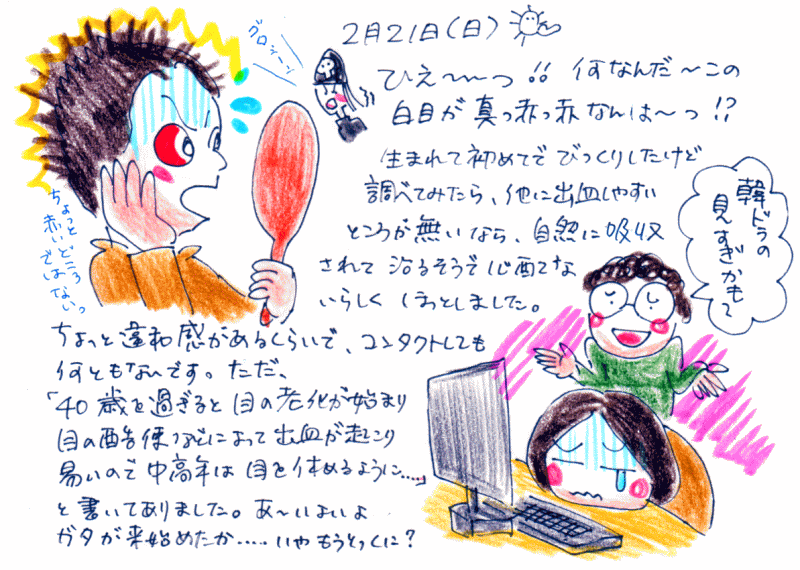 2月21日(日)
グロシーン
ひえ〜〜っ!! 何なんだ〜この
白目が真っ赤っ赤なんは〜っ!?
生まれて初めてでびっくりしたけど
調べてみたら、他に出血しやすい
ところが無いなら、自然に吸収
されて治るそうで心配てな
いらしくほっとしました。
ちょっと
赤いどころ
ではないっ
韓ドラの
見すぎかもて
ちょっと違和感があるくらいで、コンタクトしても
何ともな〜です。ただ、
「40歳を過ぎると目の老化が始まり
目の酷使などによって出血が起こり
易いので中高年は目を休めるように……」
と書いてありました。あ〜いよいよ
ガタが来始めたか……いやもうとっくに?